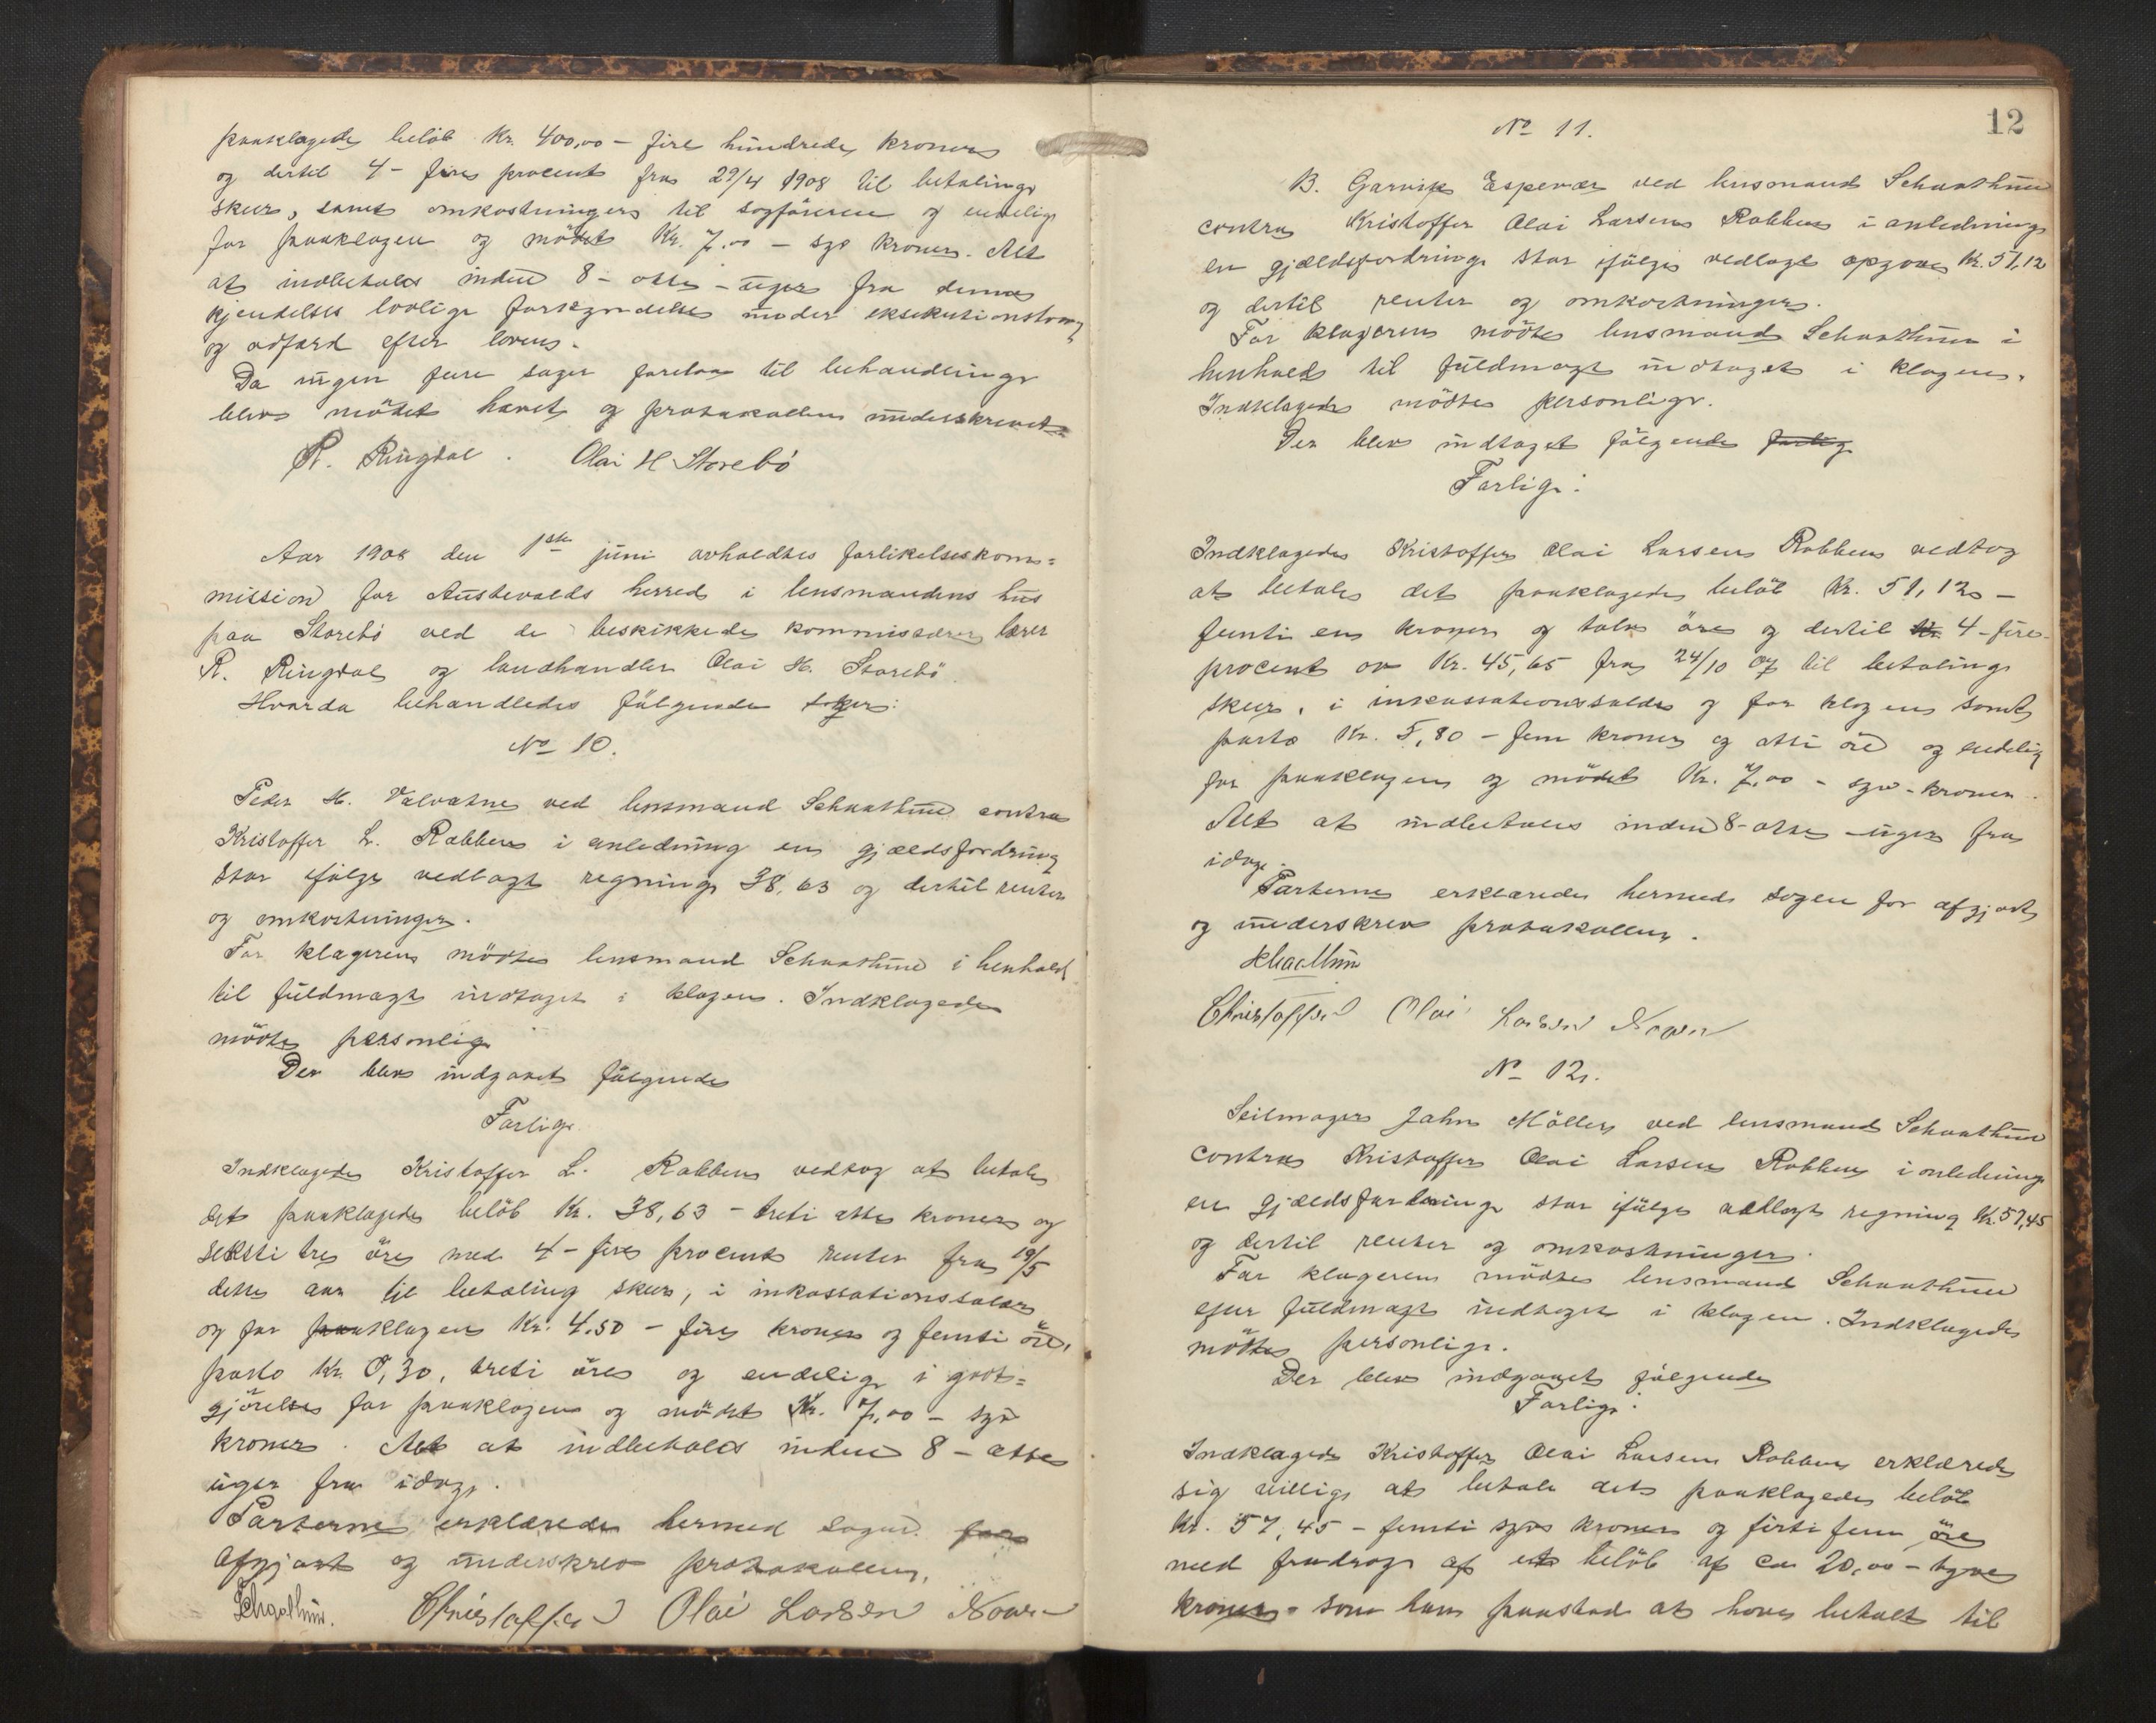 paaklagede beløb Kr. 400,00 – fire hundrede kroner
og dertil 4 – fire procent fra 29/4 1908 til betaling
sker, samt omkostninger til sagføreren og endelig
for paaklagen og mødet Kr. 7.00 – syv kroner. Alt
at indbetales inden 8 – otte – uger fra denne
kjendelses lovlige forkyndelse under eksekutionstvang
og adfærd efter loven.
Da ingen flere sager forelaa til behandling
blev mødet hævet og protokollen underskrevet.
R. Ringdal . Olai H Storebö
Aar 1908 den 1ste juni avholdtes forlikelseskom=
mission for Austevolds herred i lensmandens hus
paa Storebö ved de beskikkede kommissærer lærer
R. Ringdal og landhandler Olai H. Storebö.
Hvorda behandledes fölgende sager:
No 10.
Peder H. Valvatne ved lensmand Schaathun contra
Kristoffer L. Rabben i anledning en gjældsfordring
stor ifölge vedlagt regning 38,63 og dertil renter
og omkostninger.
For klageren mödte lensmand Schaathun i henhold
til fuldmagt indtaget i klagen. Indklagede
mödte personlig
Der blev indgaaet fölgende
Forlig.
Indklagede Kristoffer L. Rabben vedtog at betale
det paaklagede belöb Kr. 38,63 – treti otte kroner og
seksti tre öre med 4 – fire procent renter fra 19/5
dette aar til betaling sker, i inkassationssalær
og for paaklagen Kr. 4.50 – fire kroner og femti öre,
porto Kr. 0,30, treti öre og endelig i godt=
gjörelse for paaklagen og mödet Kr. 7,00 – syv
kroner. Alt at indbetales inden 8 – otte
uger fra idag.
Parterne erklærede hermed sagen for
afgjort og underskrev protokollen.
Schaathun. Christoffer Olai Larsen
12
No 11.
B. Garvik Espevær ved lensmand Schaathun
contra Kristoffer Olai Larsen Rabben i anledning
en gjældsfordring stor ifölge vedlagt opgave Kr. 51,12
og dertil renter og omkostninger.
For klageren mödte lensmand Schaathun i
henhold til fuldmagt indtaget i klagen.
Indklagede mödte personlig.
Der blev indtaget fölgende forlig
Forlig:
Indklagede Kristoffer Olai Larsen Rabben vedtog
at betale det paaklagede belöb Kr. 51,12 –
femti en kroner og tolv öre og dertil Kr. 4 – fire
procent av Kr. 45,65 fra 24/10 07 til betaling
sker, i inkassationssalær og for klagen samt
porto Kr. 5,80 – fem kroner og otti öre og endelig
for paaklagen og mödet Kr. 7,00 – syv – kroner.
Alt at indbetales inden 8 – otte – uger fra
idag.
Parterne erklærede hermed sagen for afgjort
og underskrev protokollen.
Schaathun
Christoffer Olai Larsen
No 12.
Seilmager Jahn Möller ved lensmand Schaathun
contra Kristoffer Olai Larsen Rabben i anledning
en gjældsfordring stor ifölge vedlagt regning Kr. 57,45
og dertil renter og omkostninger.
For klageren mödte lensmand Schaathun
efter fuldmagt indtaget i klagen. Indklagede
mödte personlig.
Der blev indgaaet fölgende
Forlig:
Indklagede Kristoffer Olai Larsen Rabben erklærede
sig villig at betale det paaklagede belöb
Kr. 57,45 – femti syv kroner og firti fem öre
med fradrag af et belöb af ca 20,00 – tyve
kroner – som han paastod at have betalt til